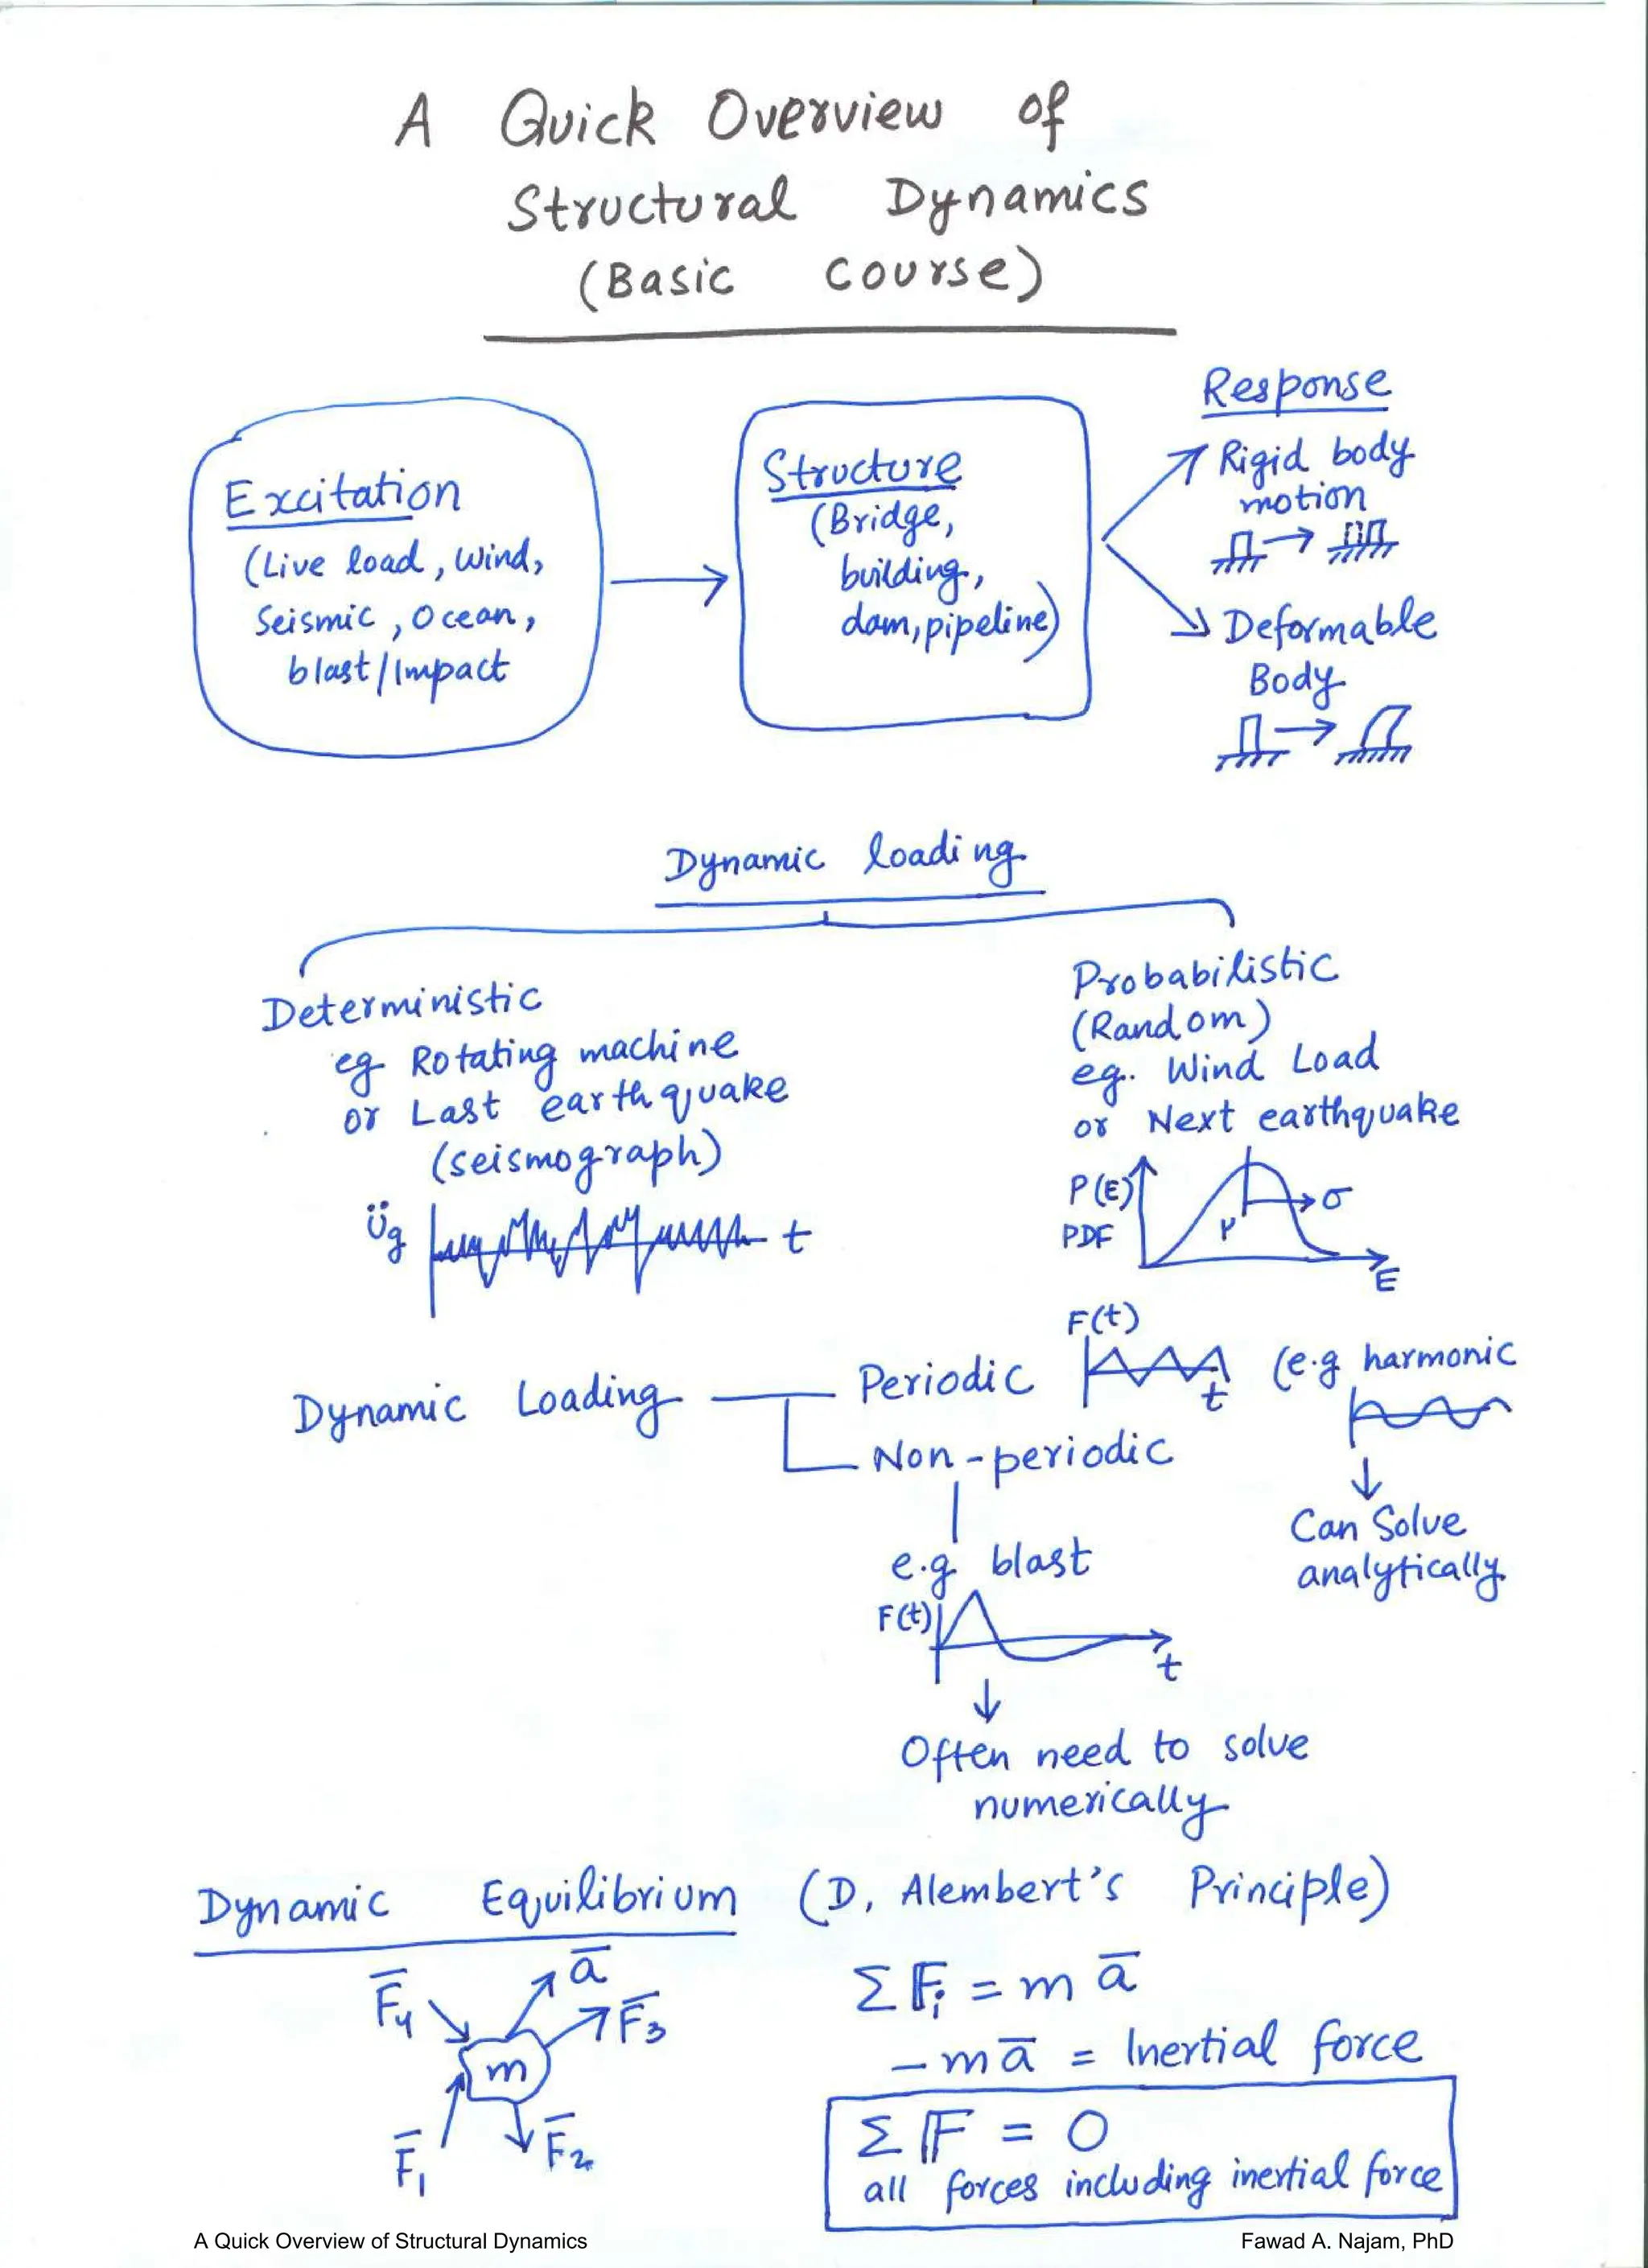 A Quick Overview of
Structural Dynamics
(Basic Course)
Excitation
(Live load, Wind,
Seismic, Ocean,
blast/Impact
Structure
(Bridge,
building,
dam, pipeline)
Response
Rigid body
motion
Deformable
Body
Dynamic loading
Deterministic
eg Rotating machine
or Last earthquake
(seismograph)
üg
t
Probabilistic
(Random)
eg. Wind Load
or Next earthquake
P(E)
PDF
μ
σ
E
Dynamic Loading
Periodic
F(t)
t
(e.g harmonic
Can Solve
analytically
Non-periodic
e.g blast
F(t)
t
Often need to solve
numerically
Dynamic Equilibrium (D, Alembert's Principle)
F̅4
a̅
F̅3
m
F̅1
F̅2
ΣFi = m a̅
-m a̅ = Inertial force
ΣF = 0
all forces including inertial force
A Quick Overview of Structural Dynamics
Fawad A. Najam, PhD